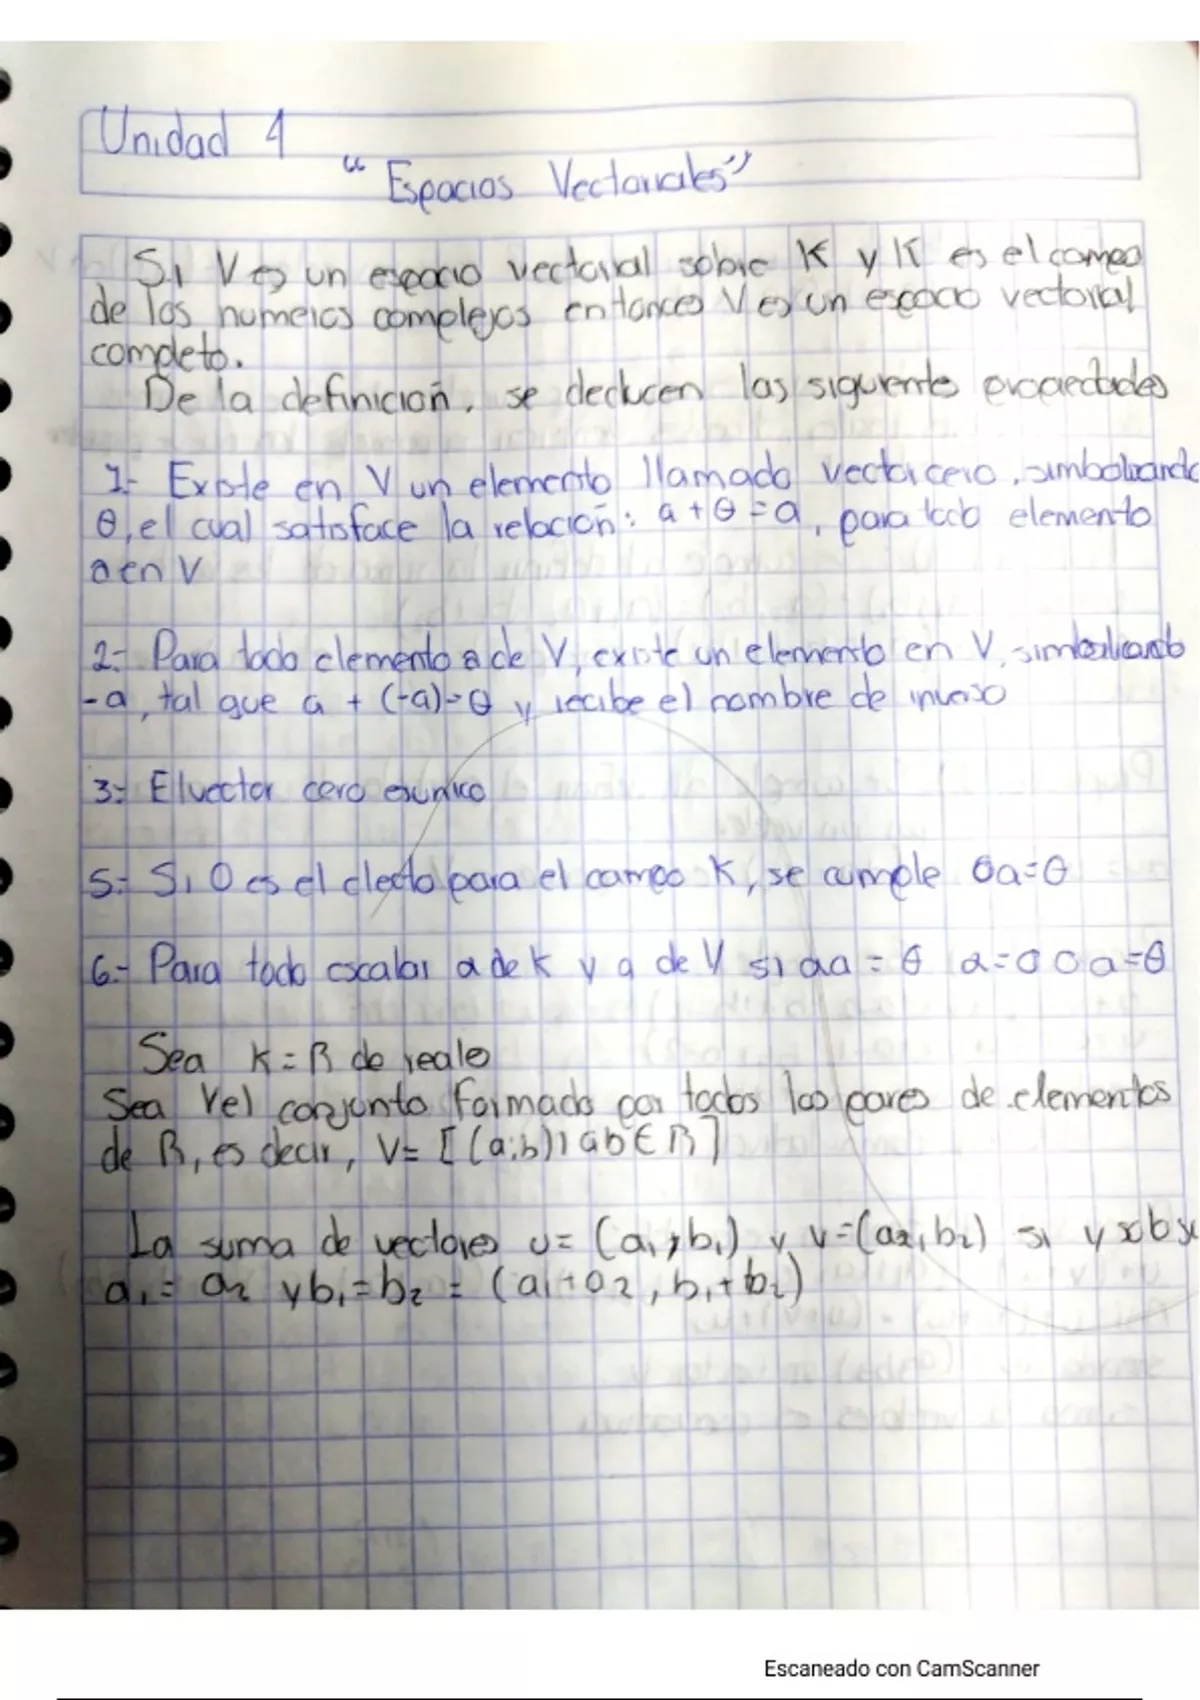 Unidad 4
"Espacios Vectoriales"
Si V es un espacio vectorial sobre K y K es el campo
de los numeros complejos entonces V es un espacio vectorial
completo.
De la definición, se deducen las siguiente propiedades
1- Existe en V un elemento llamado vector cero, simbolizando
θ, el cual satisface la relación: a + θ = a, para todo elemento
a en V
2- Para todo elemento a de V, existe un elemento en V, simbolizando
-a, tal que a + (-a) = θ y recibe el nombre de inverso
3- El vector cero es unico
5- Si 0 es el para el campo K, se cumple 0a = θ
6- Para todo escalar a de K y a de V si aa = θ a = 0 o a = θ
Sea K = R de reales
Sea V el conjunto formado por todos los pares de elementos
de R, es decir, V = [(a;b) | ab ∈ R]
La suma de vectores u = (a₁, b₁) y v = (a₂, b₂) si y
a₁ = a₂ y b₁ = b₂ = (a₁ + a₂, b₁ + b₂)
Escaneado con CamScanner